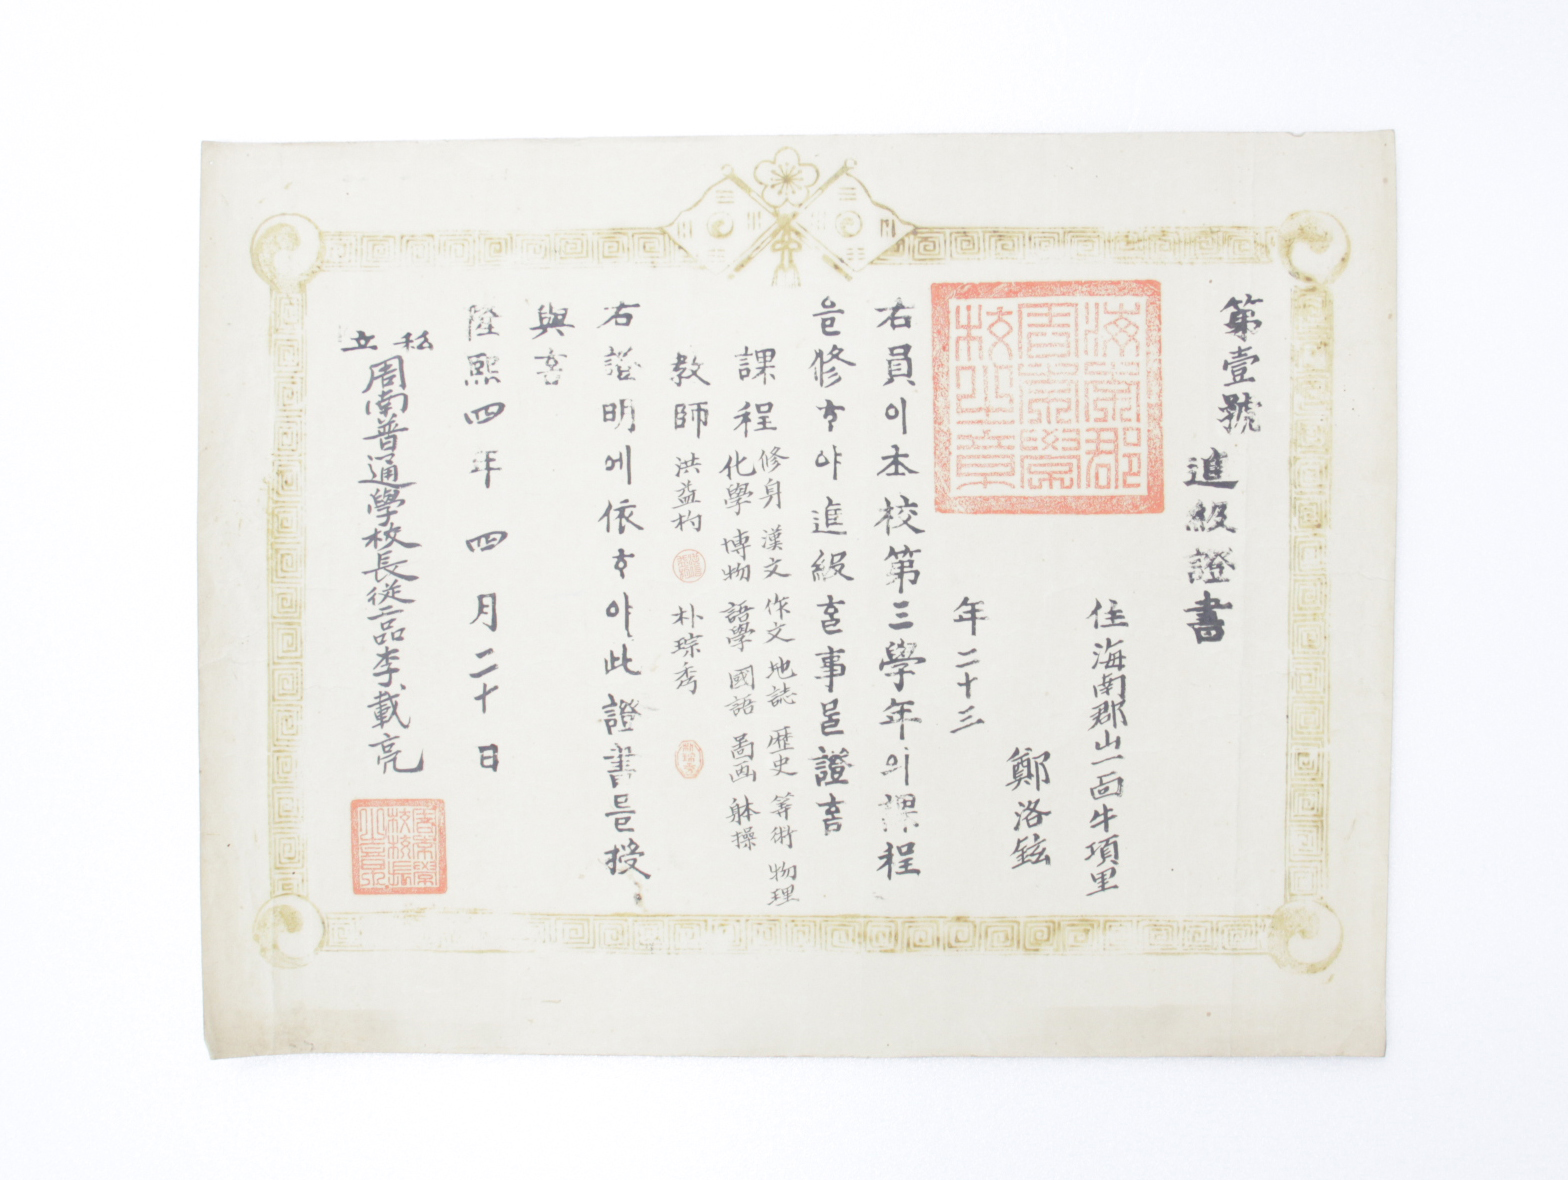 第壹號
進級證書
住 海南郡山一面牛項里
鄭洛鉉
年二十三
海南郡
周南學
校之章
右員이本校第三學年의課程
을修ᄒᆞ야進級ᄒᆞᆫ事로證ᄒᆞᆷ
課程
修身 漢文 作文 地誌 歷史 筭術 物理
化學 博物 語學 國語 啚画 躰操
教師 洪益杓 朴琮秀
右證明에依ᄒᆞ야此證書를授
與ᄒᆞᆷ
隆熙四年四月二十日
私立
周南普通學校長從二品李載亮